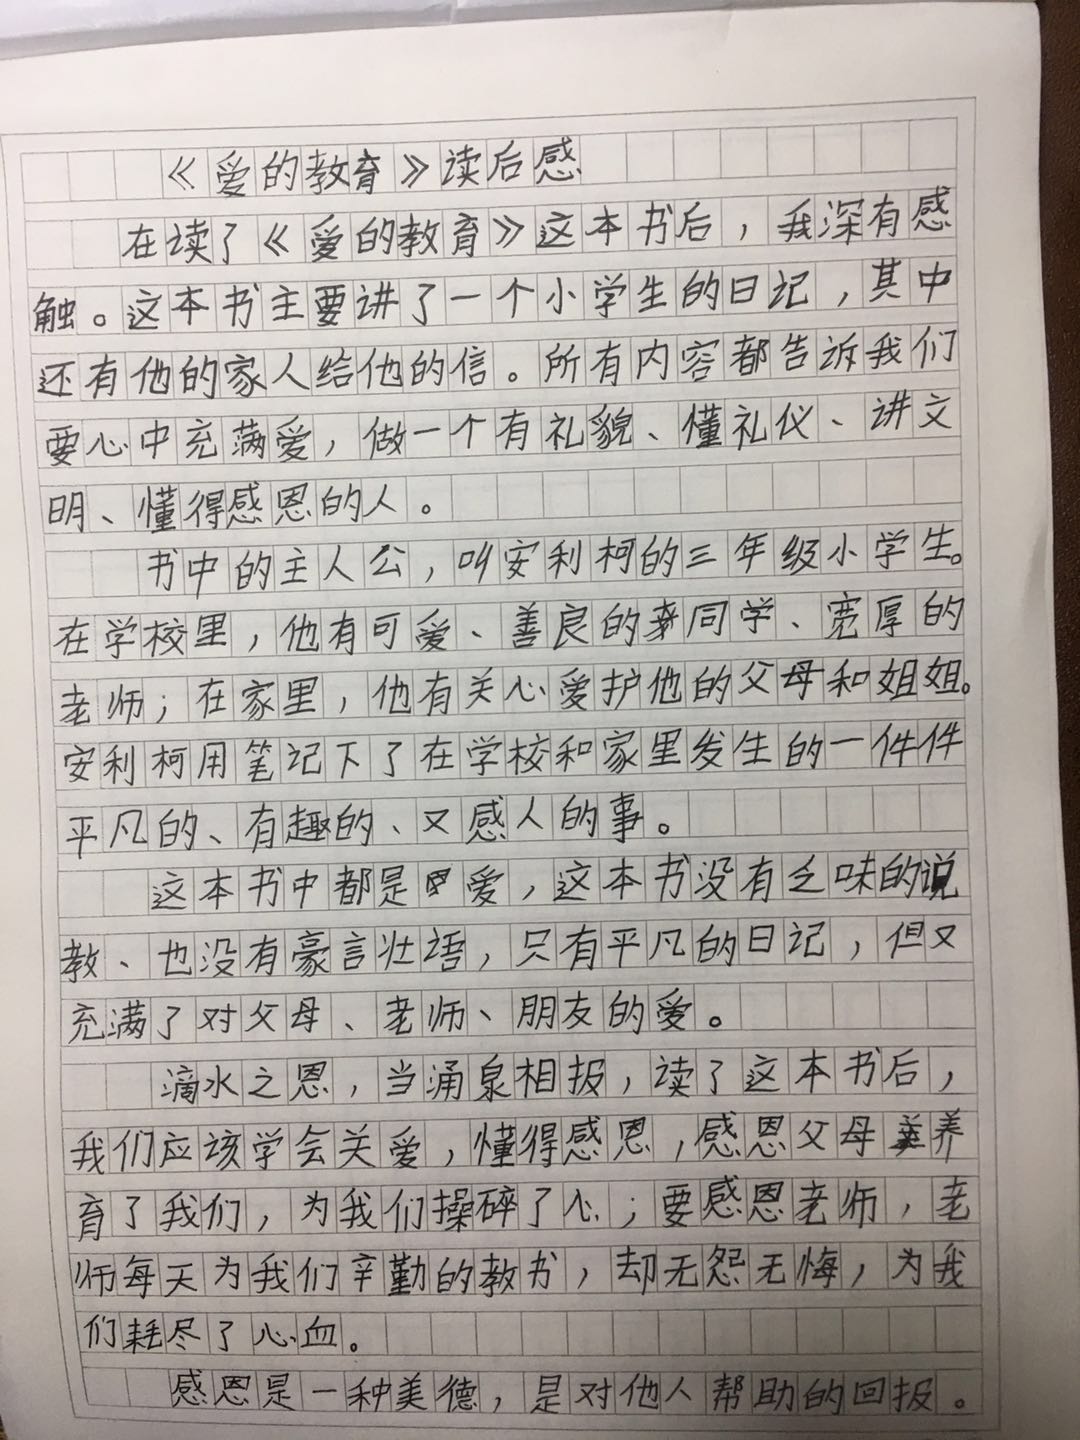 《爱的教育》读后感
在读了《爱的教育》这本书后，我深有感
触。这本书主要讲了一个小学生的日记，其中
还有他的家人给他的信。所有内容都告诉我们
要心中充满爱，做一个有礼貌、懂礼仪、讲文
明、懂得感恩的人。
书中的主人公，叫安利柯的三年级小学生。
在学校里，他有可爱、善良的同学、宽厚的
老师；在家里，他有关心爱护他的父母和姐姐。
安利柯用笔记下了在学校和家里发生的一件件
平凡的、有趣的、又感人的事。
这本书中都是爱，这本书没有乏味的说
教、也没有豪言壮语，只有平凡的日记，但又
充满了对父母、老师、朋友的爱。
滴水之恩，当涌泉相报，读了这本书后，
我们应该学会关爱，懂得感恩，感恩父母养
育了我们，为我们操碎了心；要感恩老师，老
师每天为我们辛勤的教书，却无怨无悔，为我
们耗尽了心血。
感恩是一种美德，是对他人帮助的回报。